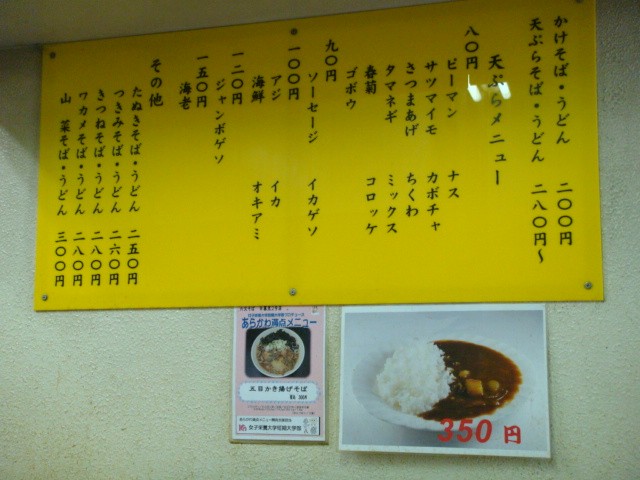 かけそば・うどん 二〇〇円
天ぷらそば・うどん 二八〇円～
天ぷらメニュー
八〇円
ピーマン ナス
サツマイモ カボチャ
さつまあげ ちくわ
タマネギ ミックス
春菊 コロッケ
ゴボウ
九〇円
ソーセージ イカゲソ
一〇〇円
アジ イカ
海鮮 オキアミ
一二〇円
ジャンボゲソ
一五〇円
海老
その他
たぬきそば・うどん 二五〇円
つきみそば・うどん 二六〇円
きつねそば・うどん 二八〇円
ワカメそば・うどん 二八〇円
山菜そば・うどん 三〇〇円
あらかわ満点メニュー
五目かき揚げそば
女子栄養大学短期大学部
350円